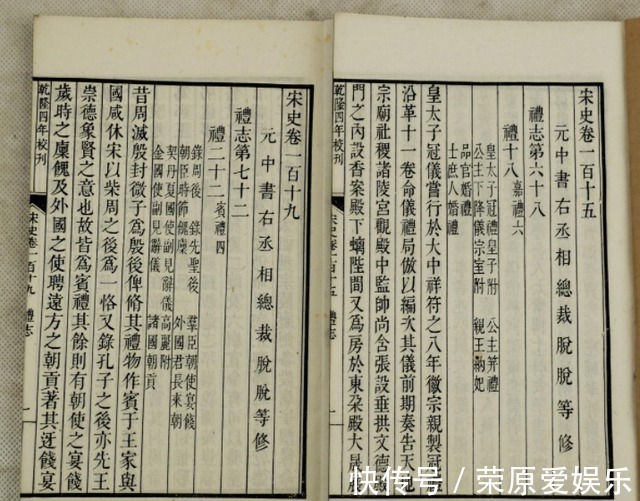 宋史卷一百十五
元中書右丞相總裁脫脫等修
禮志第六十八
禮十八
嘉禮六
皇太子冠禮皇子附
公主笄禮
公主下降儀宗室附
親王納妃
品官婚禮
士庶人婚禮
皇太子冠儀嘗行於大中祥符之八年徽宗親製冠禮
沿革十一卷命儀禮局倣以編次其儀前期奏告天地
宗廟社稷諸陵宮觀殿中監帥尚舍張設垂拱文德殿
門之內設香案殿下螭陛間又為房於東朶殿大晟
乾隆四年校刊
宋史卷一百十五
禮志
一
宋史卷一百十九
元中書右丞相總裁脫脫等修
禮志第七十二
禮二十二
賓禮四
錄周後
錄先聖後
羣臣朝使宴餞
朝臣時節饋廩
外國君長來朝
契丹夏國使副見辭儀高麗附
金國使副見辭儀
諸國朝貢
昔周滅殷封微子爲殷後俾脩其禮物作賓于王家與
國咸休宋以柴周之後爲一恪又錄孔子之後亦先王
崇德象賢之意也故皆爲賓禮其餘則有朝使之宴
歲時之廩餼及外國之使聘遠方之朝貢著其迓餞宴
乾隆四年校刊
宋史卷一百十九
禮志
一
快传号／荣原爱娱乐